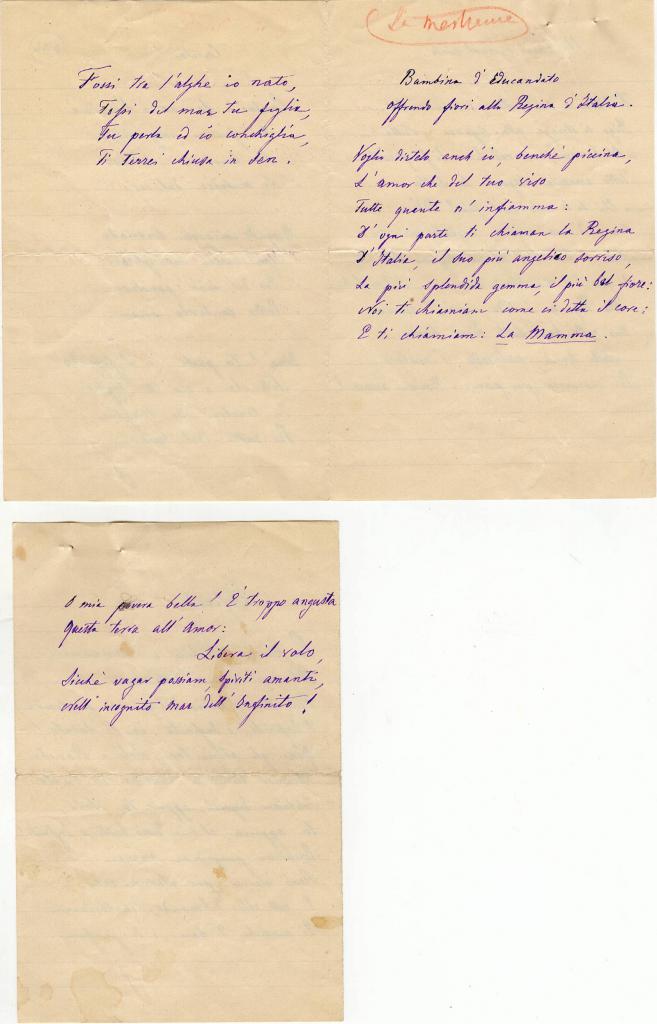 Fossi tra l'alghe io nato,
Fossi del mar tu figlia,
Tu perla ed io conchiglia,
Ti terrei chiusa in sen.
Le
Bambina d'Educandato
offrendo fiori alla Regina d'Italia.
Voglio dirtelo anch'io, benchè piccina,
L'amor che del tuo viso
Tutte quante n'infiamma:
D'ogni parte ti chiaman la Regina
D'Italia, il suo più angelico sorriso,
La più splendida gemma, il più bel fiore:
Noi ti chiamiam come ci detta il core:
E ti chiamiam: La Mamma.
O mia povera bella! È troppo angusta
Questa terra all'Amor:
Libera il volo,
Sicchè vagar possiam, spiriti amanti,
Nell'incognito mar dell'Infinito!